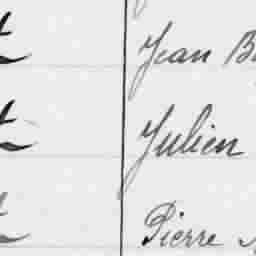 Jean
Julien
Pierre